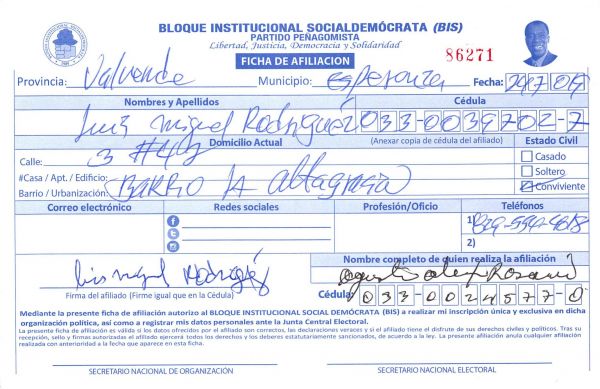 BLOQUE INSTITUCIONAL SOCIALDEMÓCRATA (BIS)
PARTIDO PEÑAGOMISTA
Libertad, Justicia, Democracia y Solidaridad
FICHA DE AFILIACION
86271
Provincia: Valverde Municipio: Esperanza Fecha:
Nombres y Apellidos Cédula
Luis Miguel Rodriguez 033-0039702-7
Domicilio Actual (Anexar copia de cédula del afiliado) Estado Civil
Calle: 3 #42 Casado
#Casa / Apt. / Edificio: Soltero
Barrio / Urbanización: BARRIO LA altagracia Conviviente
Correo electrónico Redes sociales Profesión/Oficio Teléfonos
1)
2)
Luis miguel Rodriguez
Nombre completo de quien realiza la afiliación
Rosario
Firma del afiliado (Firme igual que en la Cédula) Cédula 033-0024577-0
Mediante la presente ficha de afiliación autorizo al BLOQUE INSTITUCIONAL SOCIAL DEMÓCRATA (BIS) a realizar mi inscripción única y exclusiva en dicha
organización política, así como a registrar mis datos personales ante la Junta Central Electoral.
La presente ficha de afiliación es válida si los datos ofrecidos por el afiliado son correctos, las declaraciones veraces y si el afiliado tiene el disfrute de sus derechos civiles y políticos. Tras su
recepción, sello y firmas autorizadas el afiliado ejercerá todos los derechos y los deberes estatutariamente sancionados, de acuerdo a la ley. La presente afiliación anula cualquier afiliación
realizada con anterioridad a la fecha que aparece en esta ficha.
SECRETARIO NACIONAL DE ORGANIZACIÓN SECRETARIO NACIONAL ELECTORAL